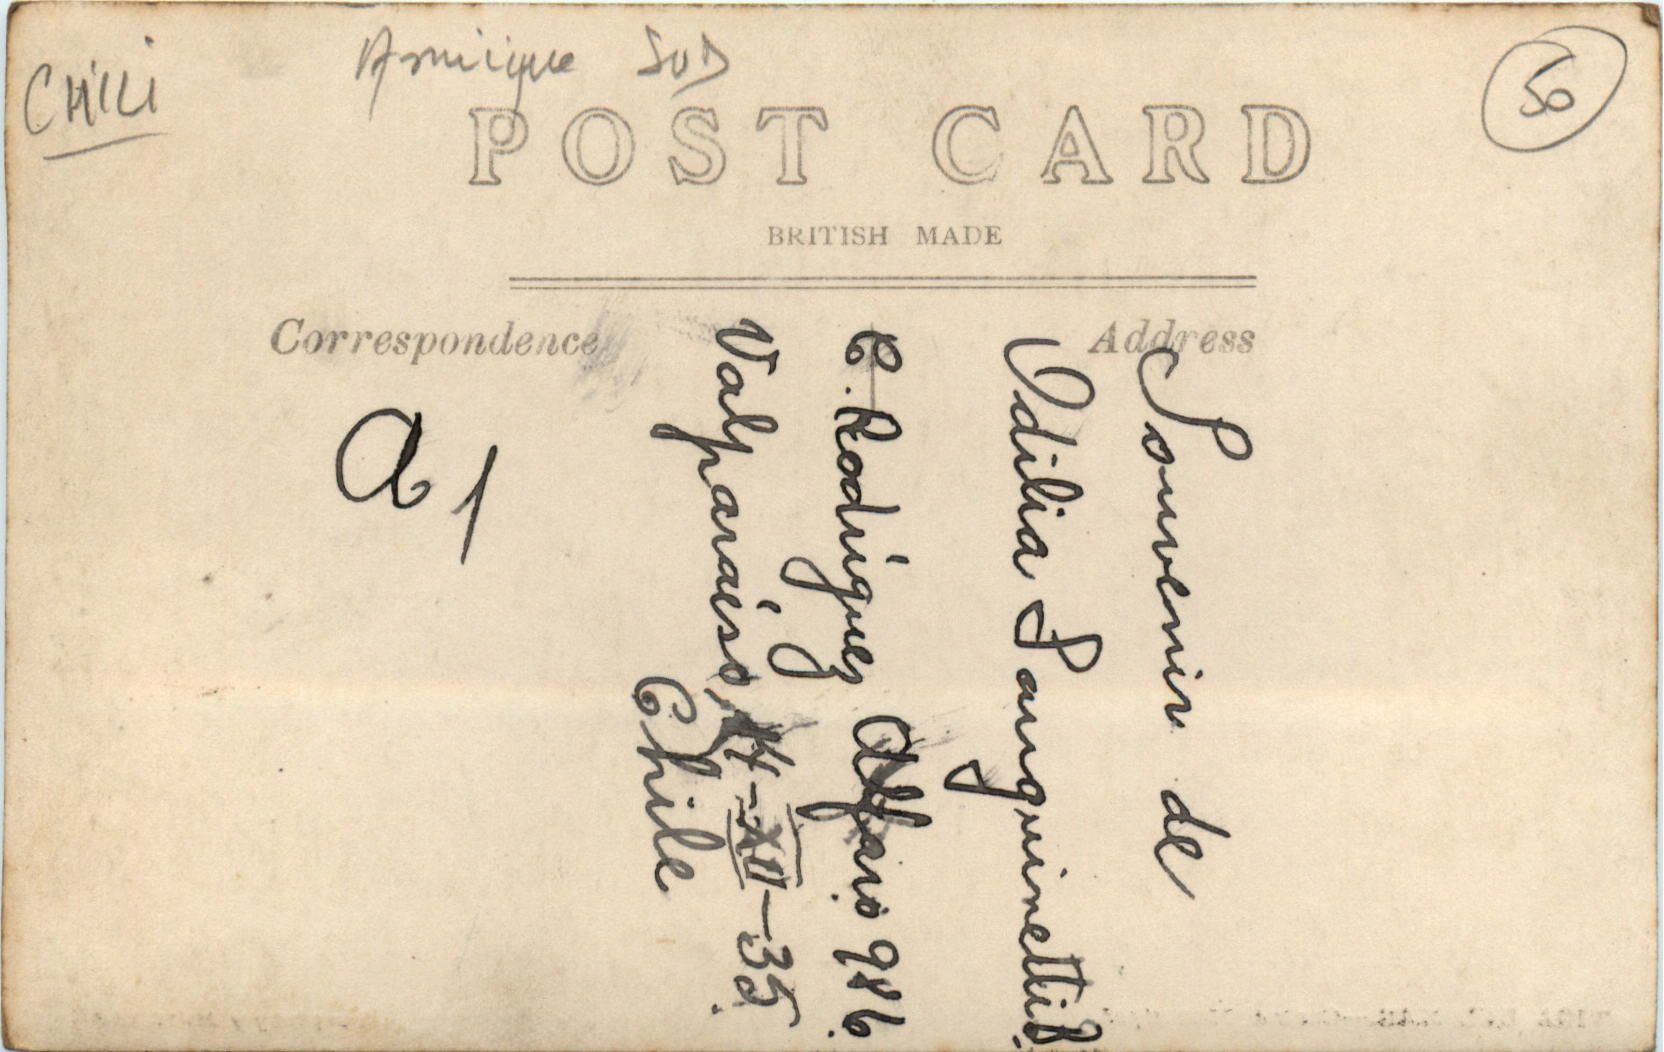 CHILI
Amérique SUD
50
POST CARD
BRITISH MADE
Correspondence
Address
a 1
Souvenir de
Odilia Sanguinetti B.
C. Rodríguez Alfaro 986.
Valparaíso, 14-XII-35.
Chile